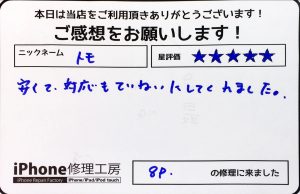 本日は当店をご利用頂きありがとうございます!
ご感想をお願いします!
ニックネーム トモ 星評価 ★★★★★
安くて、対応もていねいにしてくれました。
iPhone修理工房
iPhone Repair Factory iPhone/iPad/iPod touch
8P. の修理に来ました